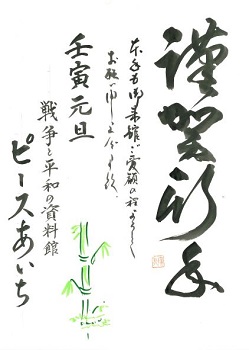 謹賀新年
本年も御来館ご愛顧の程よろしく
お願い申し上げます
壬寅元旦
戦争と平和の資料館
ピースあいち